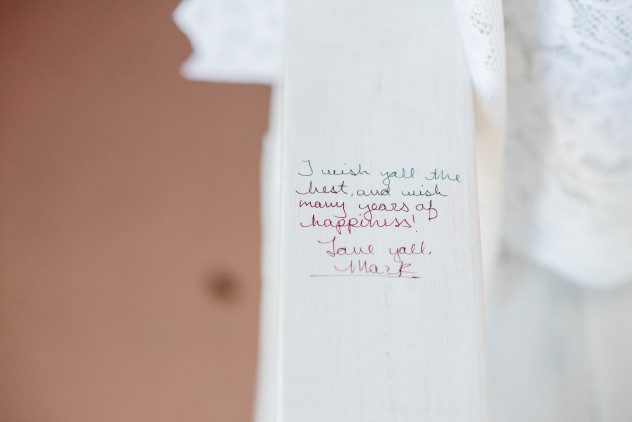 I wish yall the
best, and wish
many years of
happiness!
Love yall,
Mark